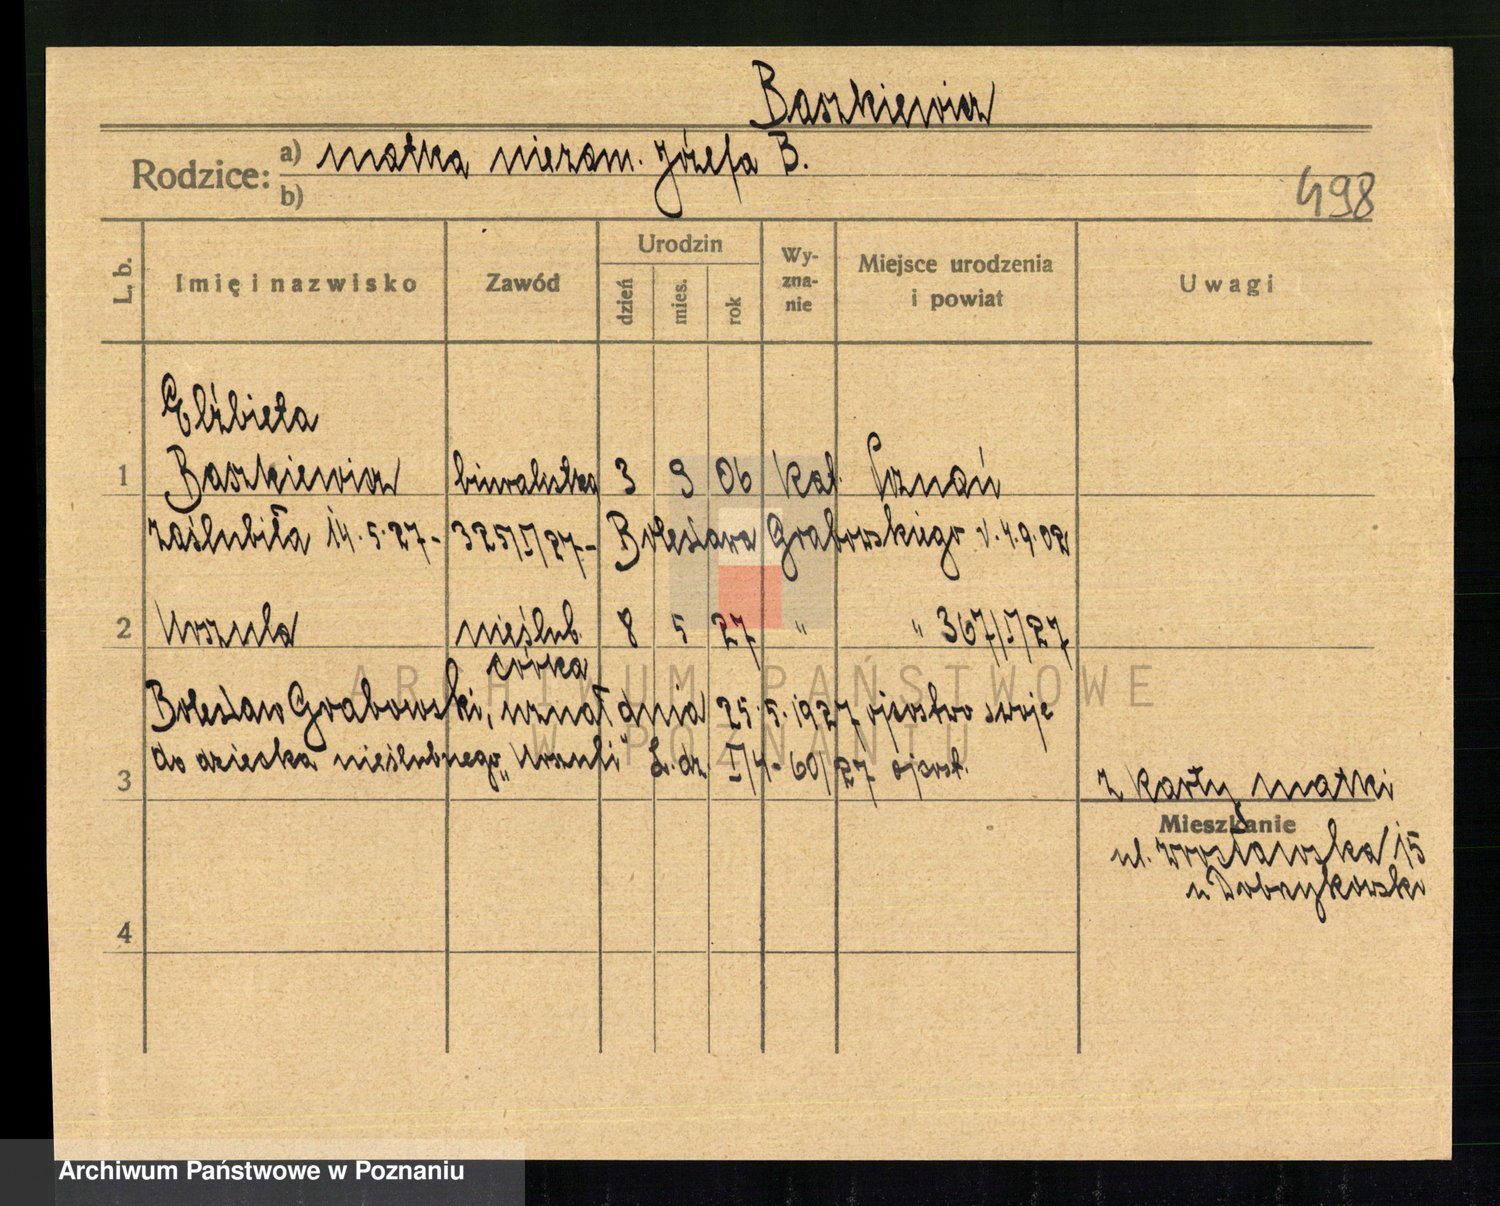 Baszkiewicz
Rodzice: a) matka niezam. Józefa B.
b)
498
L. b.
Imię i nazwisko
Zawód
Urodzin
dzień
mies.
rok
Wy-
zna-
nie
Miejsce urodzenia
i powiat
Uwagi
Elżbieta
1 Baszkiewicz biuralistka 3 9 06 kat. Poznań
zaślubiła 14.5.27- 325/I/27- Bolesława Grabowskiego v. 4.9.02
2 Urszula nieślub. 8 5 27 " " 367/I/27
córka
Bolesław Grabowski, uznał dnia 25.5.1927 ojcostwo swoje
do dziecka nieślubnego „Urszuli" L. dz. I/4-60/27 ojcost.
3
z karty matki
Mieszkanie
ul. Wrocławska 15
u Dobrzykowski
4
ARCHIWUM PAŃSTWOWE
W POZNANIU
Archiwum Państwowe w Poznaniu